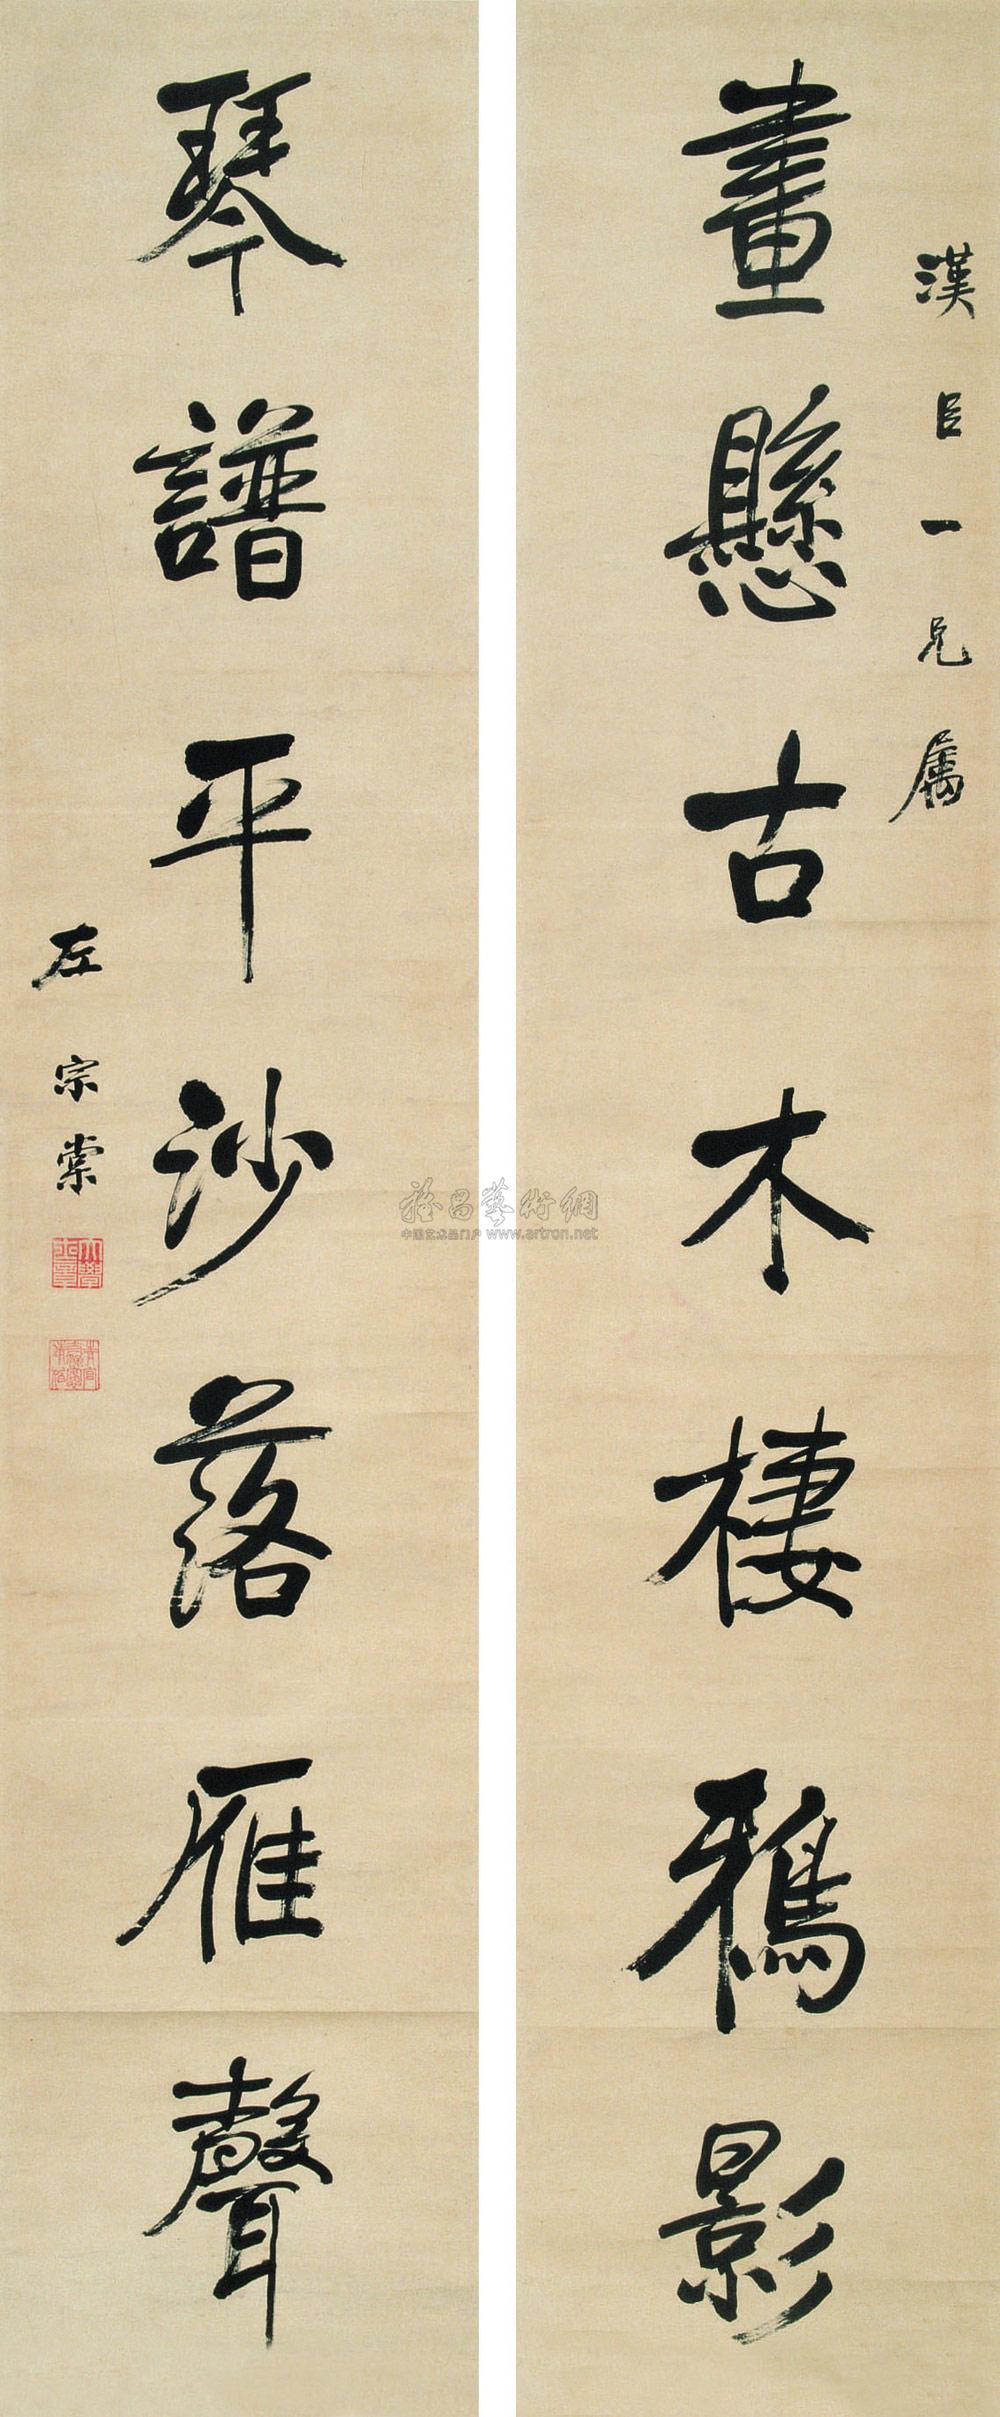 漢臣一兄屬
畫懸古木棲鴉影
琴譜平沙落雁聲
左宗棠
雅昌藝術網
中国艺术品门户 www.artron.net